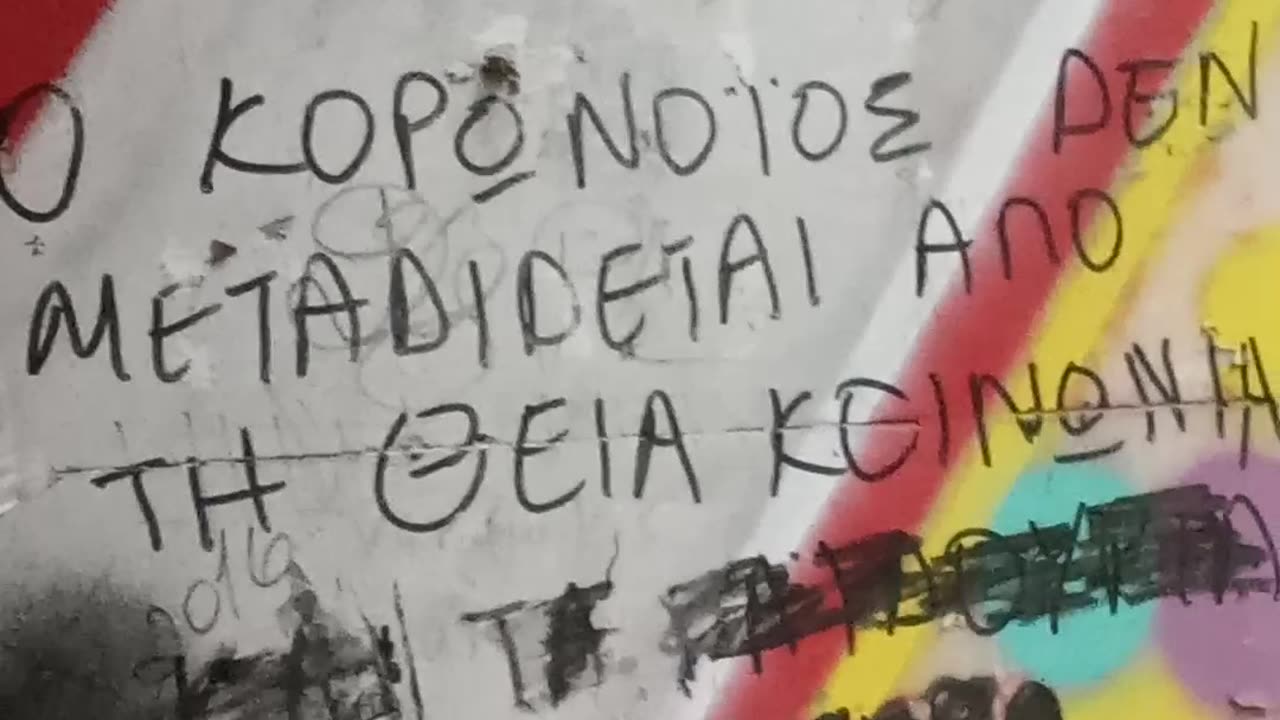 Ο ΚΟΡΩΝΟΪΟΣ ΔΕΝ
ΜΕΤΑΔΙΔΕΤΑΙ ΑΠΟ
ΤΗ ΘΕΙΑ ΚΟΙΝΩΝΙΑ
2016